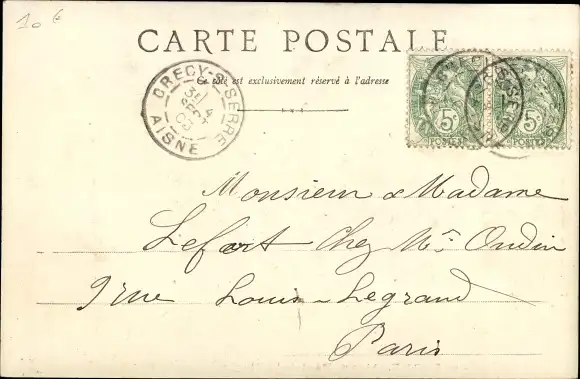 10 €
CARTE POSTALE
Ce côté est exclusivement réservé à l'adresse
CRECY-S-SERRE
4
SEPT
03
AISNE
5c
POSTES
5c
POSTES
Monsieur & Madame
Lefort Chez Mr. Oudin
9 rue Louis-Legrand
Paris